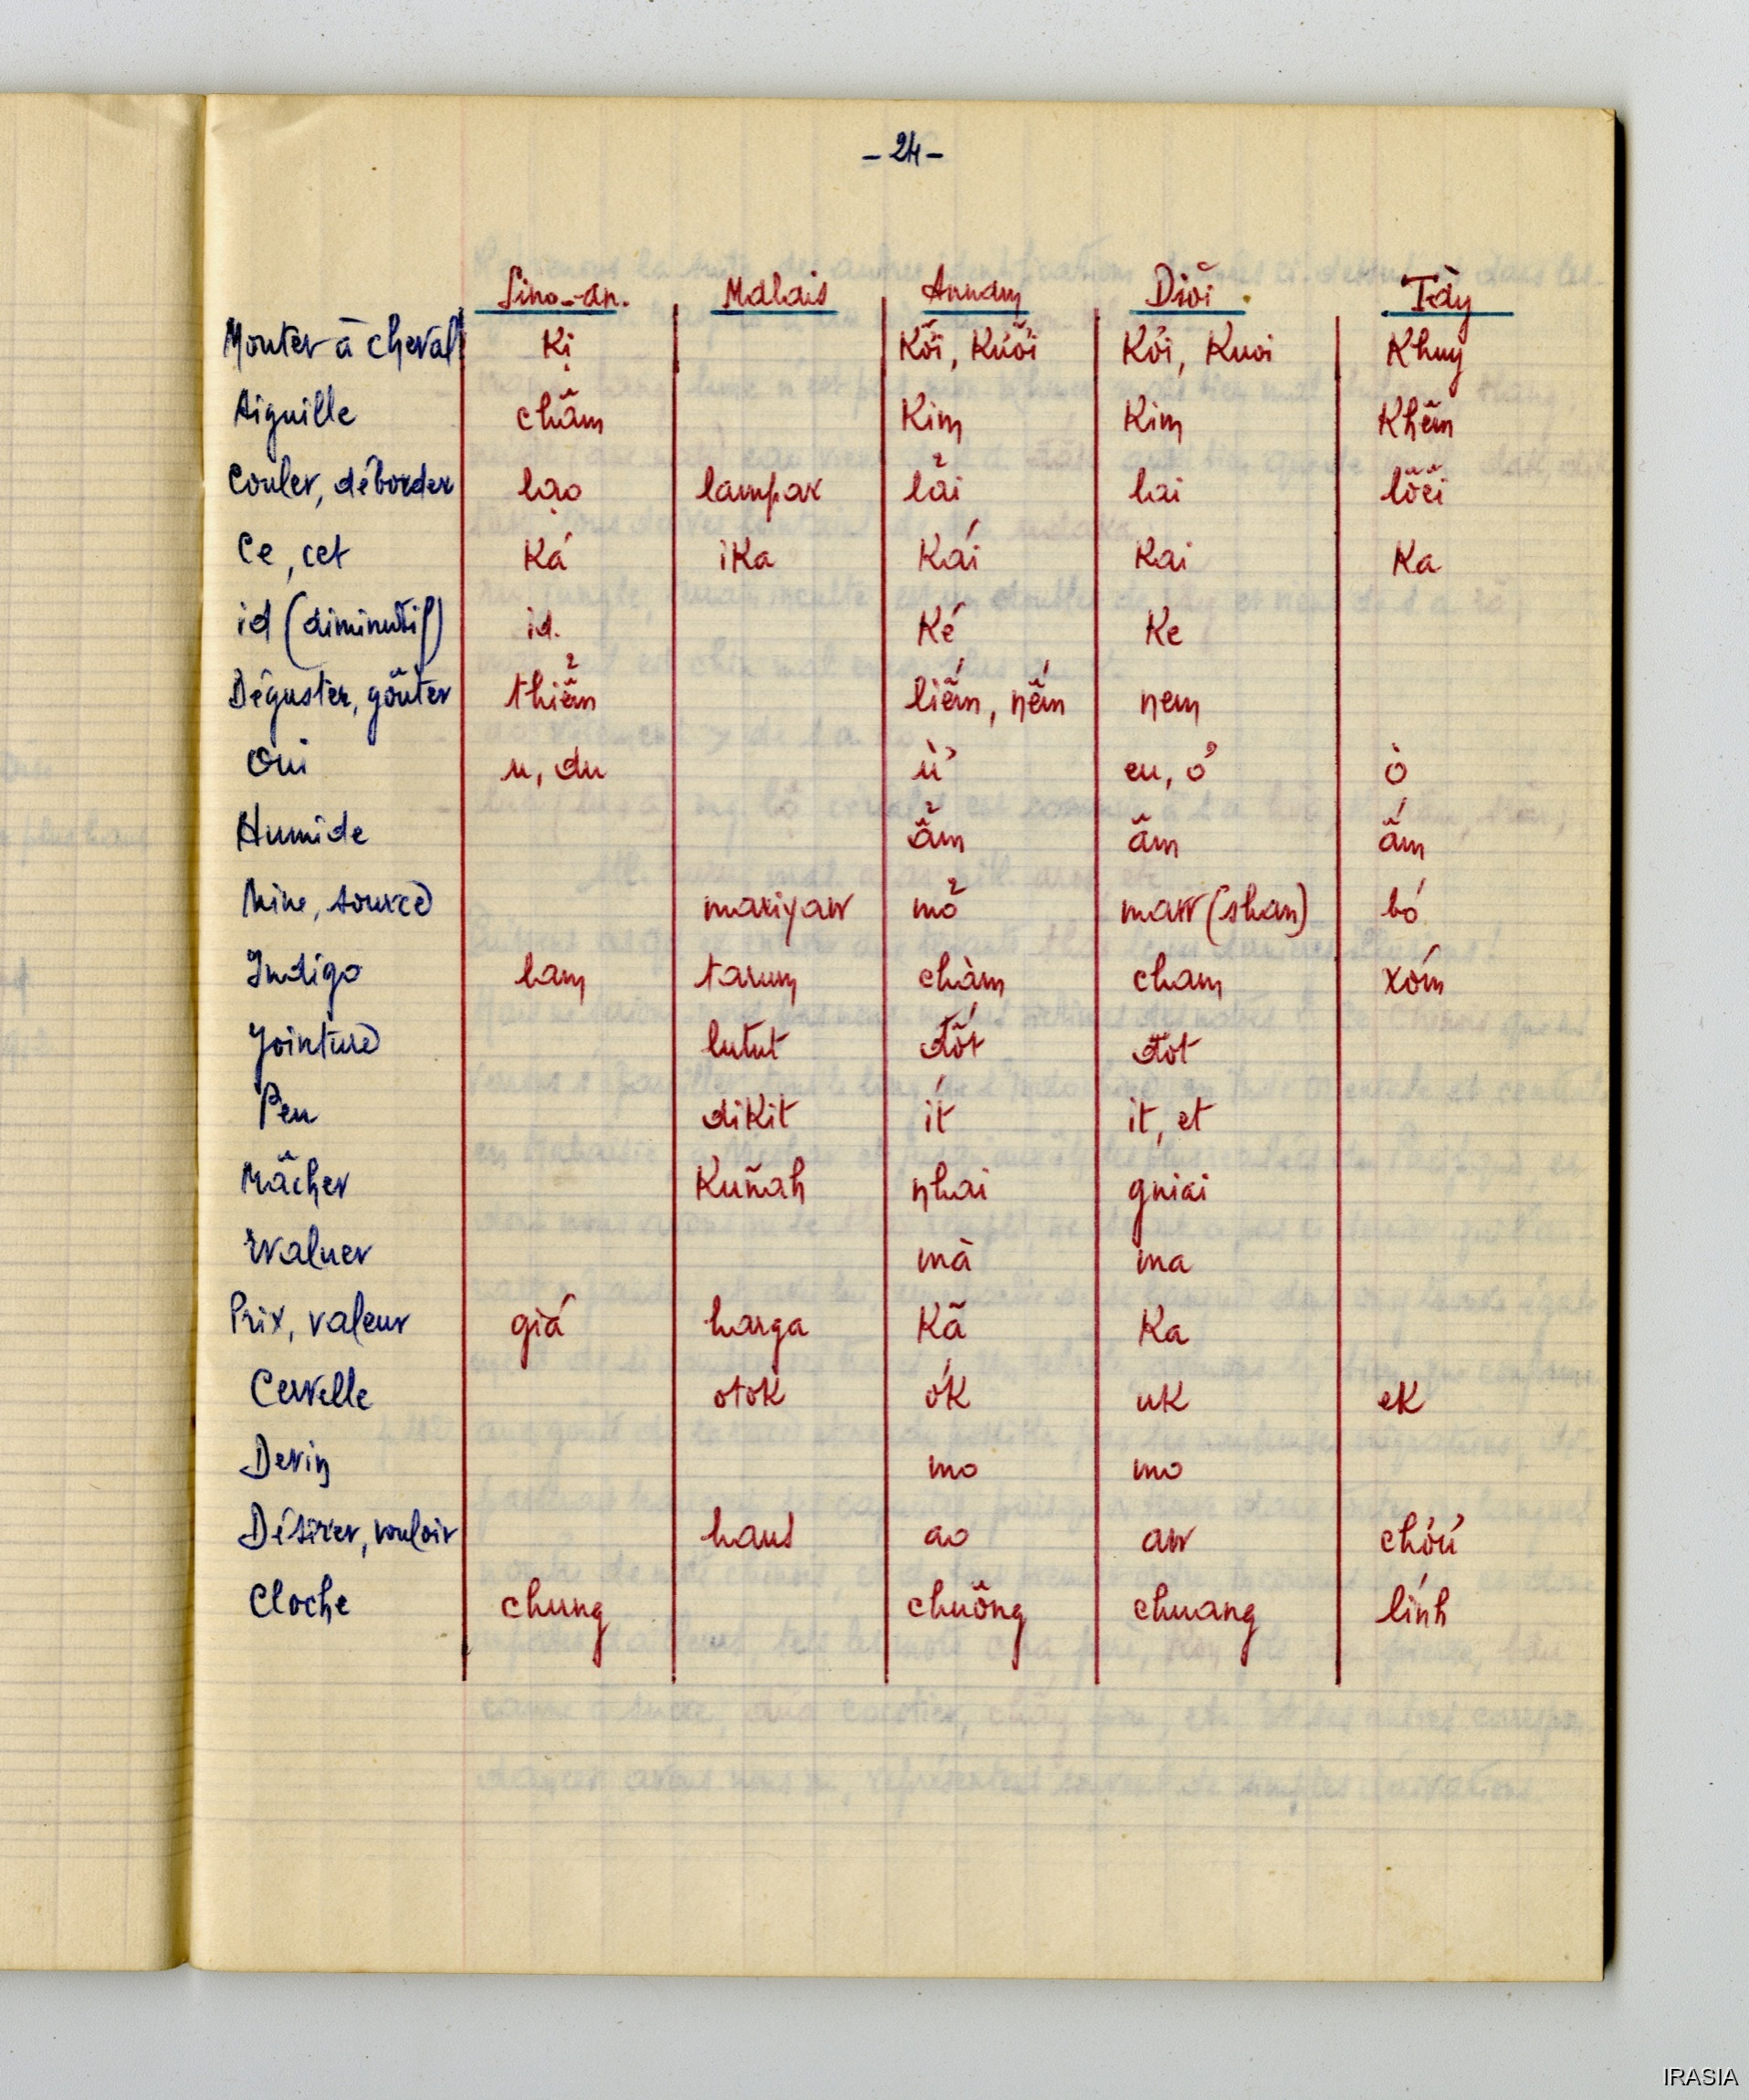 - 24 -
Sino-an. Malais Annam Dioi Tày
Monter à cheval Kị Kỡi, Kưỡi Kỏi, Kuoi Khuy
Aiguille châm Kim Kim Khêm
Couler, déborder lạo lampar lải lai lôêi
Ce, cet Ká iKa Kái Kai Ka
id (diminutif) id. Ké Ke
Déguster, goûter thiểm liếm, nếm nem
Oui u, du ừ eu, ơ ò
Humide ẩm âm ấm
Mine, source mariyaw mỏ maw (shan) bó
Indigo lam tarum chàm cham xóm
Jointure lutut đốt đôt
Peu diKit ít it, et
Mâcher Kuñah nhai gniai
Evaluer mà ma
Prix, valeur giá harga Kã Ka
Cervelle otoK óK uK eK
Devin mo mo
Désirer, vouloir haus ao aw
Cloche chung chuông chuang lính
IRASIA